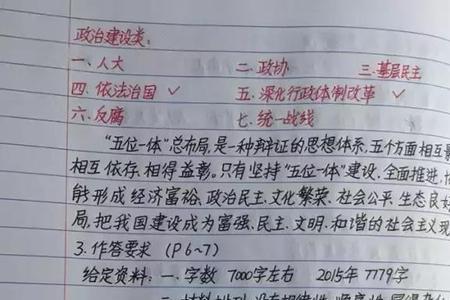 政治建设类:
一、人大 二、政协 三、基层民主
四、依法治国 ✓ 五、深化行政体制改革 ✓
六、反腐 七、统一战线
“五位一体”总布局,是一种辩证的思想体系,五个方面相互
相互依存、相得益彰。只有坚持“五位一体”建设、全面推进、
能形成经济富裕、政治民主、文化繁荣、社会公平、生态良
局,把我国建设成为富强、民主、文明、和谐的社会主义现
3.作答要求 (P6~7)
给定资料:一、字数 7000字左右 2015年 7779字